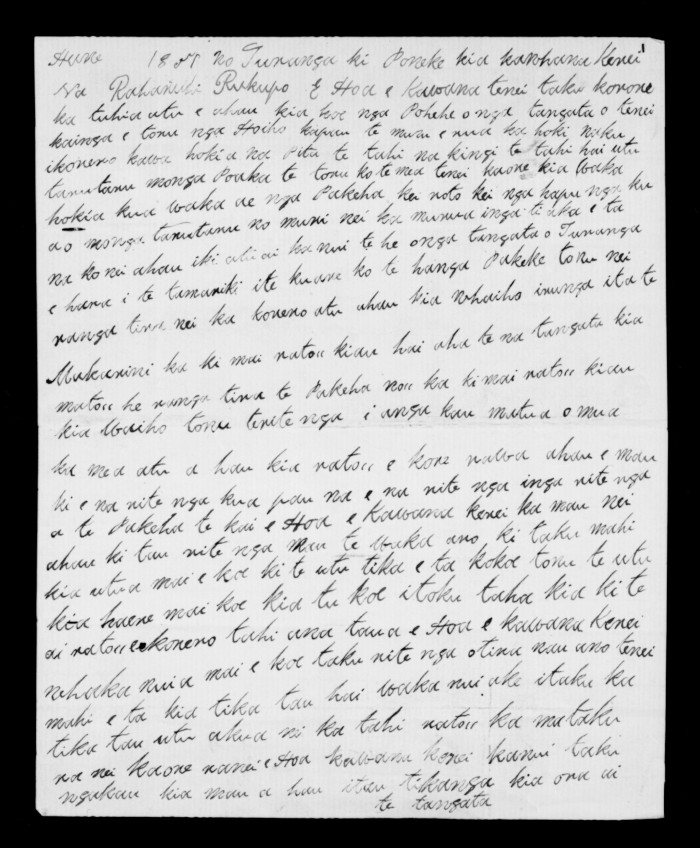 Hune 1851 no Turanga ki Poneke kia kawhana Kerei 1
Na Raharuhi Rukupo E Hoa e Kawana tenei taku korore
ka tuhia atu e ahau kia koe nga Pohehe o nga tangata o tenei
kainga e tonu nga Hoiho kapau te muru e rua ka hoki naku
i korero kawa hokia na Pitu te tahi na kingi te tahi hai utu
tanutanu monga Poaka te tonu ko te mea tenei kaore kia waka
hokia kua waka ae nga Pakeha kei roto kei nga hapu nga ku
ao monga tanutanu no muri nei ka murua inga tiaka e ta
na ko nei ahau iki ai ka nui te he o nga tangata o Turanga
e hara i te tamariki ite kuare ko te hanga Pakeke tonu nei
ranga tira nei ka korero atu ahau kia whaiho irunga ita te
Makarini ka ki mai ratou kiau hai aha te na tangata kia
matou he ranga tira te Pakeha nou ka ki mai ratou kiau
kia Waiho tonu terite nga i anga kau matua o mua
ka mea atu a hau kia ratou e kore rawa ahau e mau
ki e na rite nga kua pau na e na rite nga inga rite nga
a te Pakeha te kai e Hoa e Kawana kerei ka mau nei
ahau ki tau rite nga Mau te waka ano ki taku mahi
kia utua mai e koe ki te utu tika e ta kokoe tonu te utu
kia haere mai koe kia tu koe itoku taha kia ki te
ai ratou e korero tahi ana taua e Hoa e kawana Kerei
whaka nuia mai e koe taku rite nga otira nau ano tenei
mahi e ta kia tika tau hai waka nui ake itaku ka
tika tau utu akua ni ka tahi ratou ka mataku
ra nei kaore ranei e Hoa kawana kerei kanui taku
ngakau kia mau a hau itau tikanga kia ora ai
te tangata